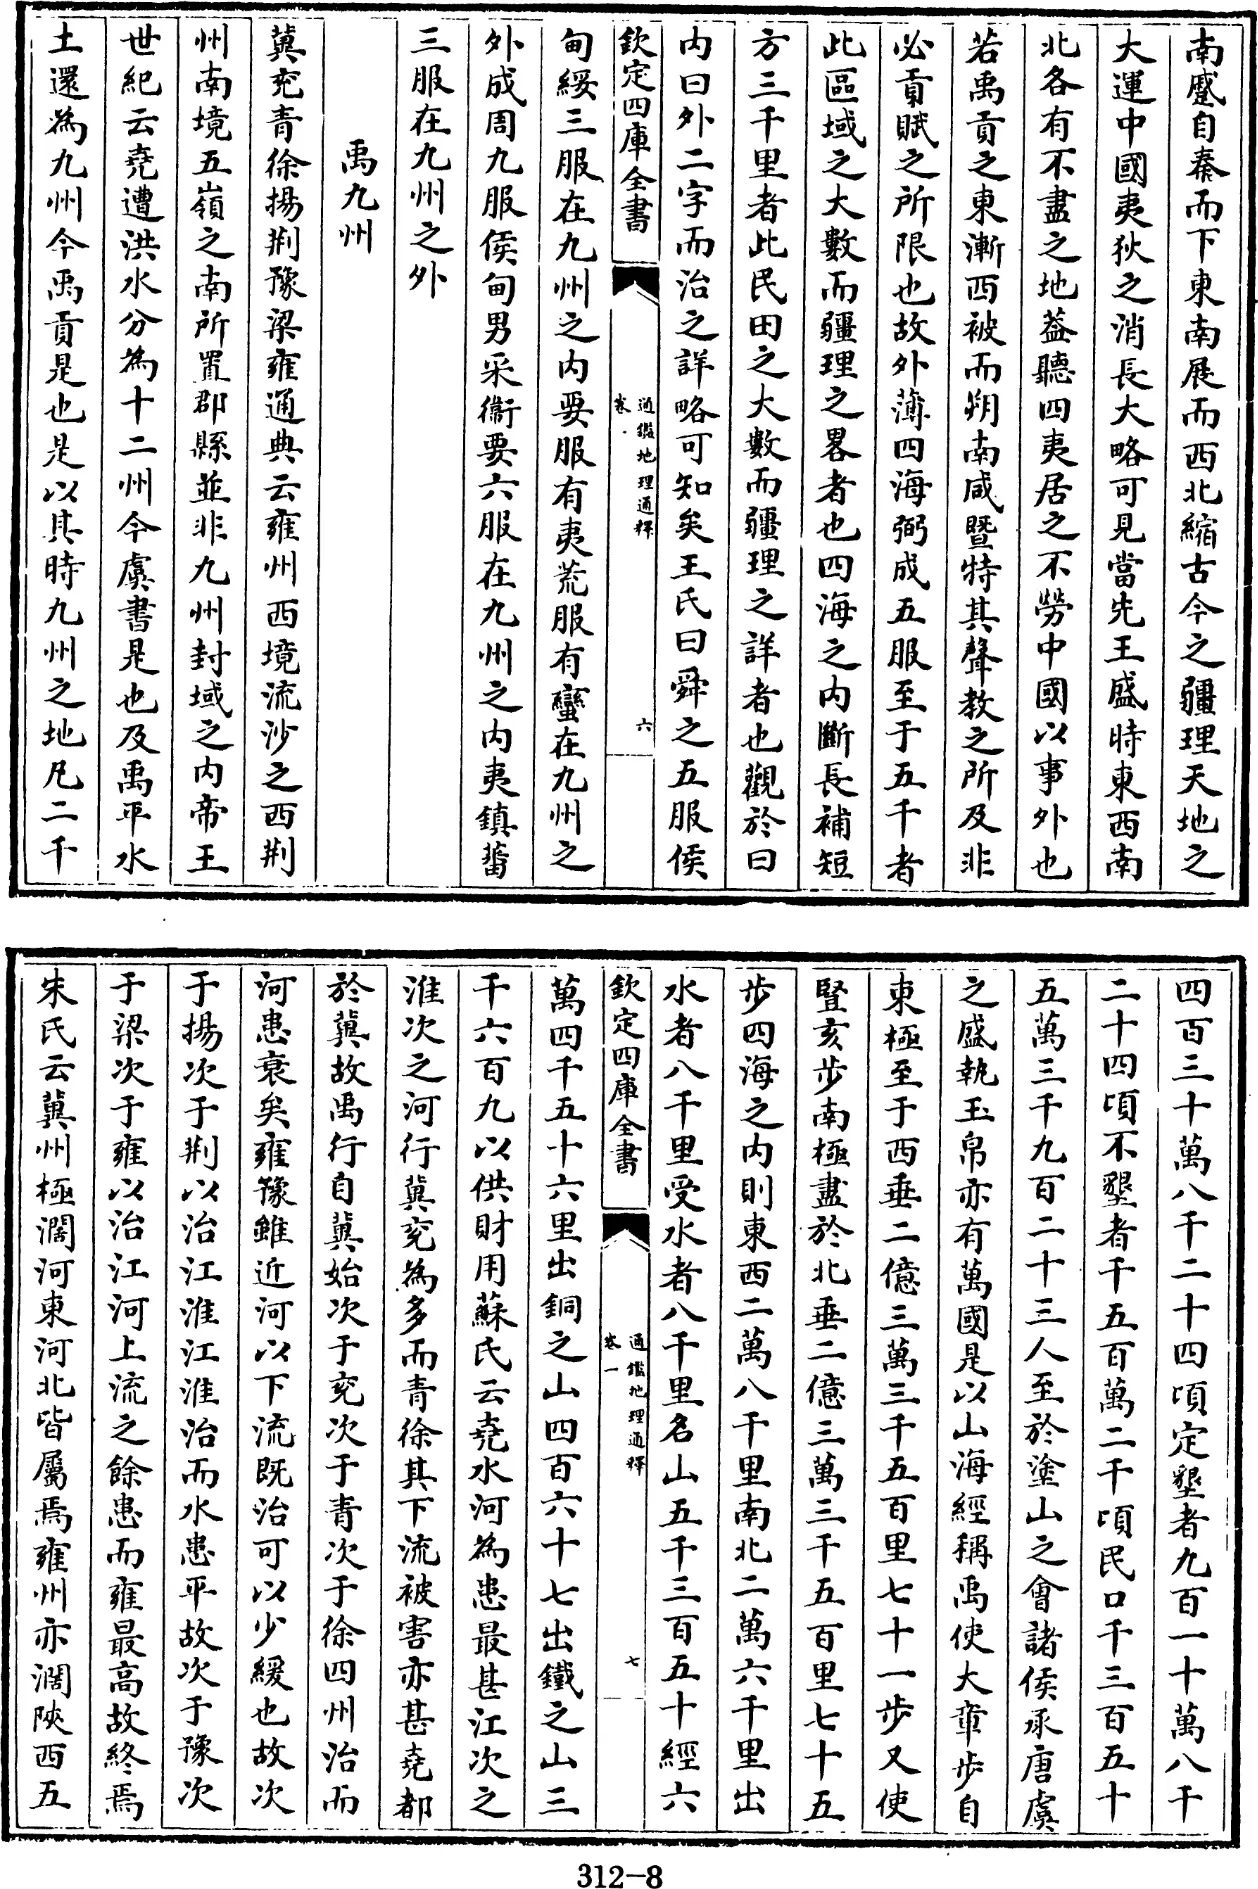 南蹙自秦而下東南展而西北縮古今之疆理天地之
大運中國夷狄之消長大略可見當先王盛時東西南
北各有不盡之地葢聽四夷居之不勞中國以事外也
若禹貢之東漸西被而朔南咸暨特其聲教之所及非
必貢賦之所限也故外薄四海弼成五服至于五千者
此區域之大數而疆理之畧者也四海之内斷長補短
方三千里者此民田之大數而疆理之詳者也觀於曰
内曰外二字而治之詳略可知矣王氏曰舜之五服侯
欽定四庫全書
通鑑地理通釋
卷一
六
甸綏三服在九州之内要服有夷荒服有蠻在九州之
外成周九服侯甸男采衞要六服在九州之内夷鎮蕃
三服在九州之外
禹九州
冀兖青徐揚荆豫梁雍通典云雍州西境流沙之西荆
州南境五嶺之南所置郡縣並非九州封域之内帝王
世紀云堯遭洪水分為十二州今虞書是也及禹平水
土還為九州今禹貢是也是以其時九州之地凡二千
四百三十萬八千二十四頃定墾者九百一十萬八千
二十四頃不墾者千五百萬二千頃民口千三百五十
五萬三千九百二十三人至於塗山之會諸侯承唐虞
之盛執玉帛亦有萬國是以山海經稱禹使大章步自
東極至于西垂二億三萬三千五百里七十一步又使
豎亥步南極盡於北垂二億三萬三千五百里七十五
步四海之内則東西二萬八千里南北二萬六千里出
水者八千里受水者八千里名山五千三百五十經六
欽定四庫全書
通鑑地理通釋
卷一
七
萬四千五十六里出銅之山四百六十七出鐵之山三
千六百九以供財用蘇氏云堯水河為患最甚江次之
淮次之河行冀兖為多而青徐其下流被害亦甚堯都
於冀故禹行自冀始次于兖次于青次于徐四州治而
河患衰矣雍豫雖近河以下流既治可以少緩也故次
于揚次于荆以治江淮江淮治而水患平故次于豫次
于梁次于雍以治江河上流之餘患而雍最高故終焉
朱氏云冀州極濶河東河北皆屬焉雍州亦濶陝西五
312-8